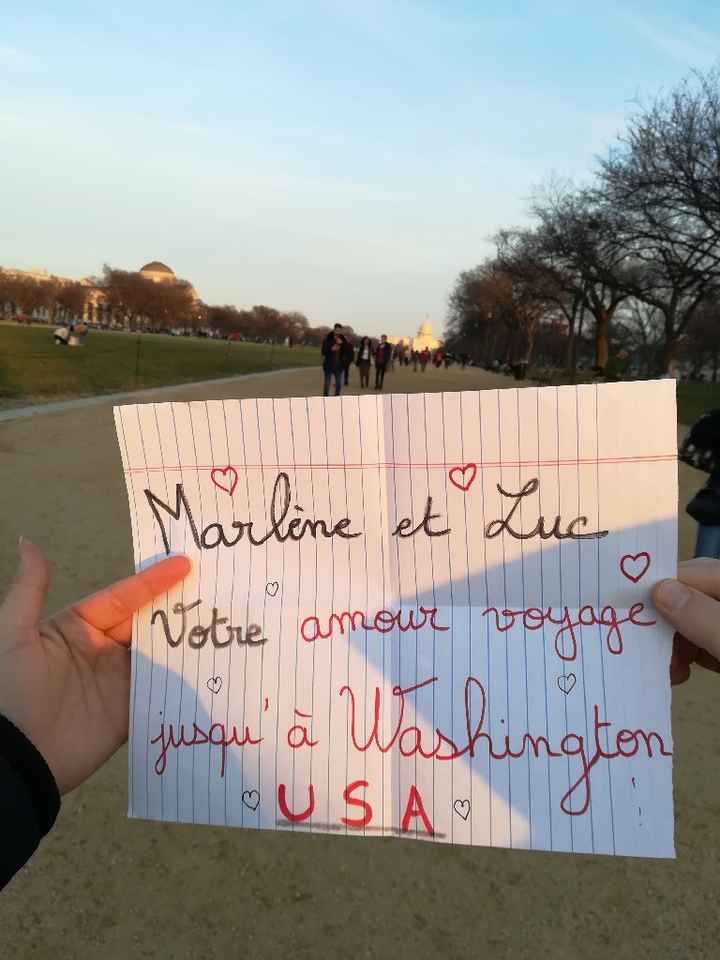 Marlène et Luc
Votre amour voyage
jusqu'à Washington
USA